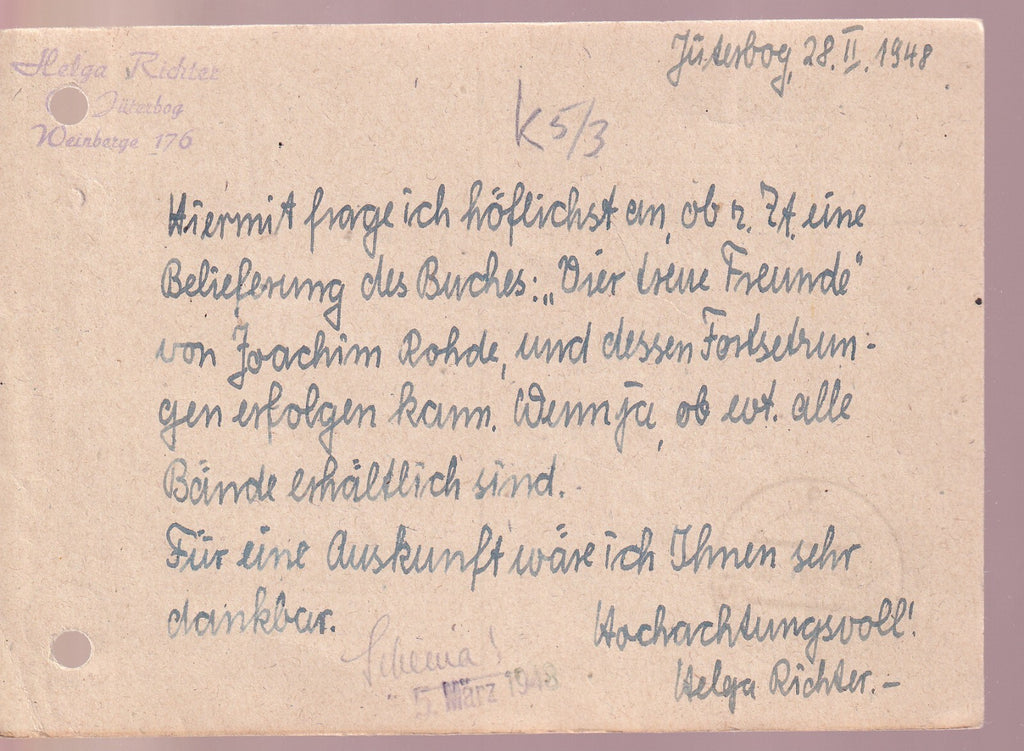 Helga Richter
Jüterbog
Weinberge 176
Jüterbog, 28. II. 1948
K 5/3
Hiermit frage ich höflichst an, ob z. Zt. eine
Belieferung des Buches: „Vier treue Freunde"
von Joachim Rohde, und dessen Fortsetzun-
gen erfolgen kann. Wenn ja, ob evt. alle
Bände erhältlich sind.
Für eine Auskunft wäre ich Ihnen sehr
dankbar.
Hochachtungsvoll!
Helga Richter.–
Schema!
5. März 1948